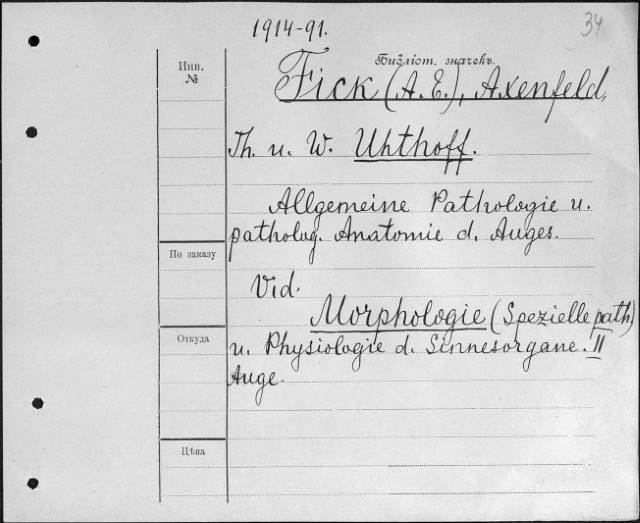 1914-91.
34
Инв.
№
Библіот. значекъ.
Fick (A. E.), Axenfeld,
Th. u. W. Uhthoff.
Allgemeine Pathologie u.
patholog. Anatomie d. Auges.
По заказу
Vid.
Morphologie (Spezielle path)
Откуда
u. Physiologie d. Sinnesorgane. II
Auge.
Цѣна